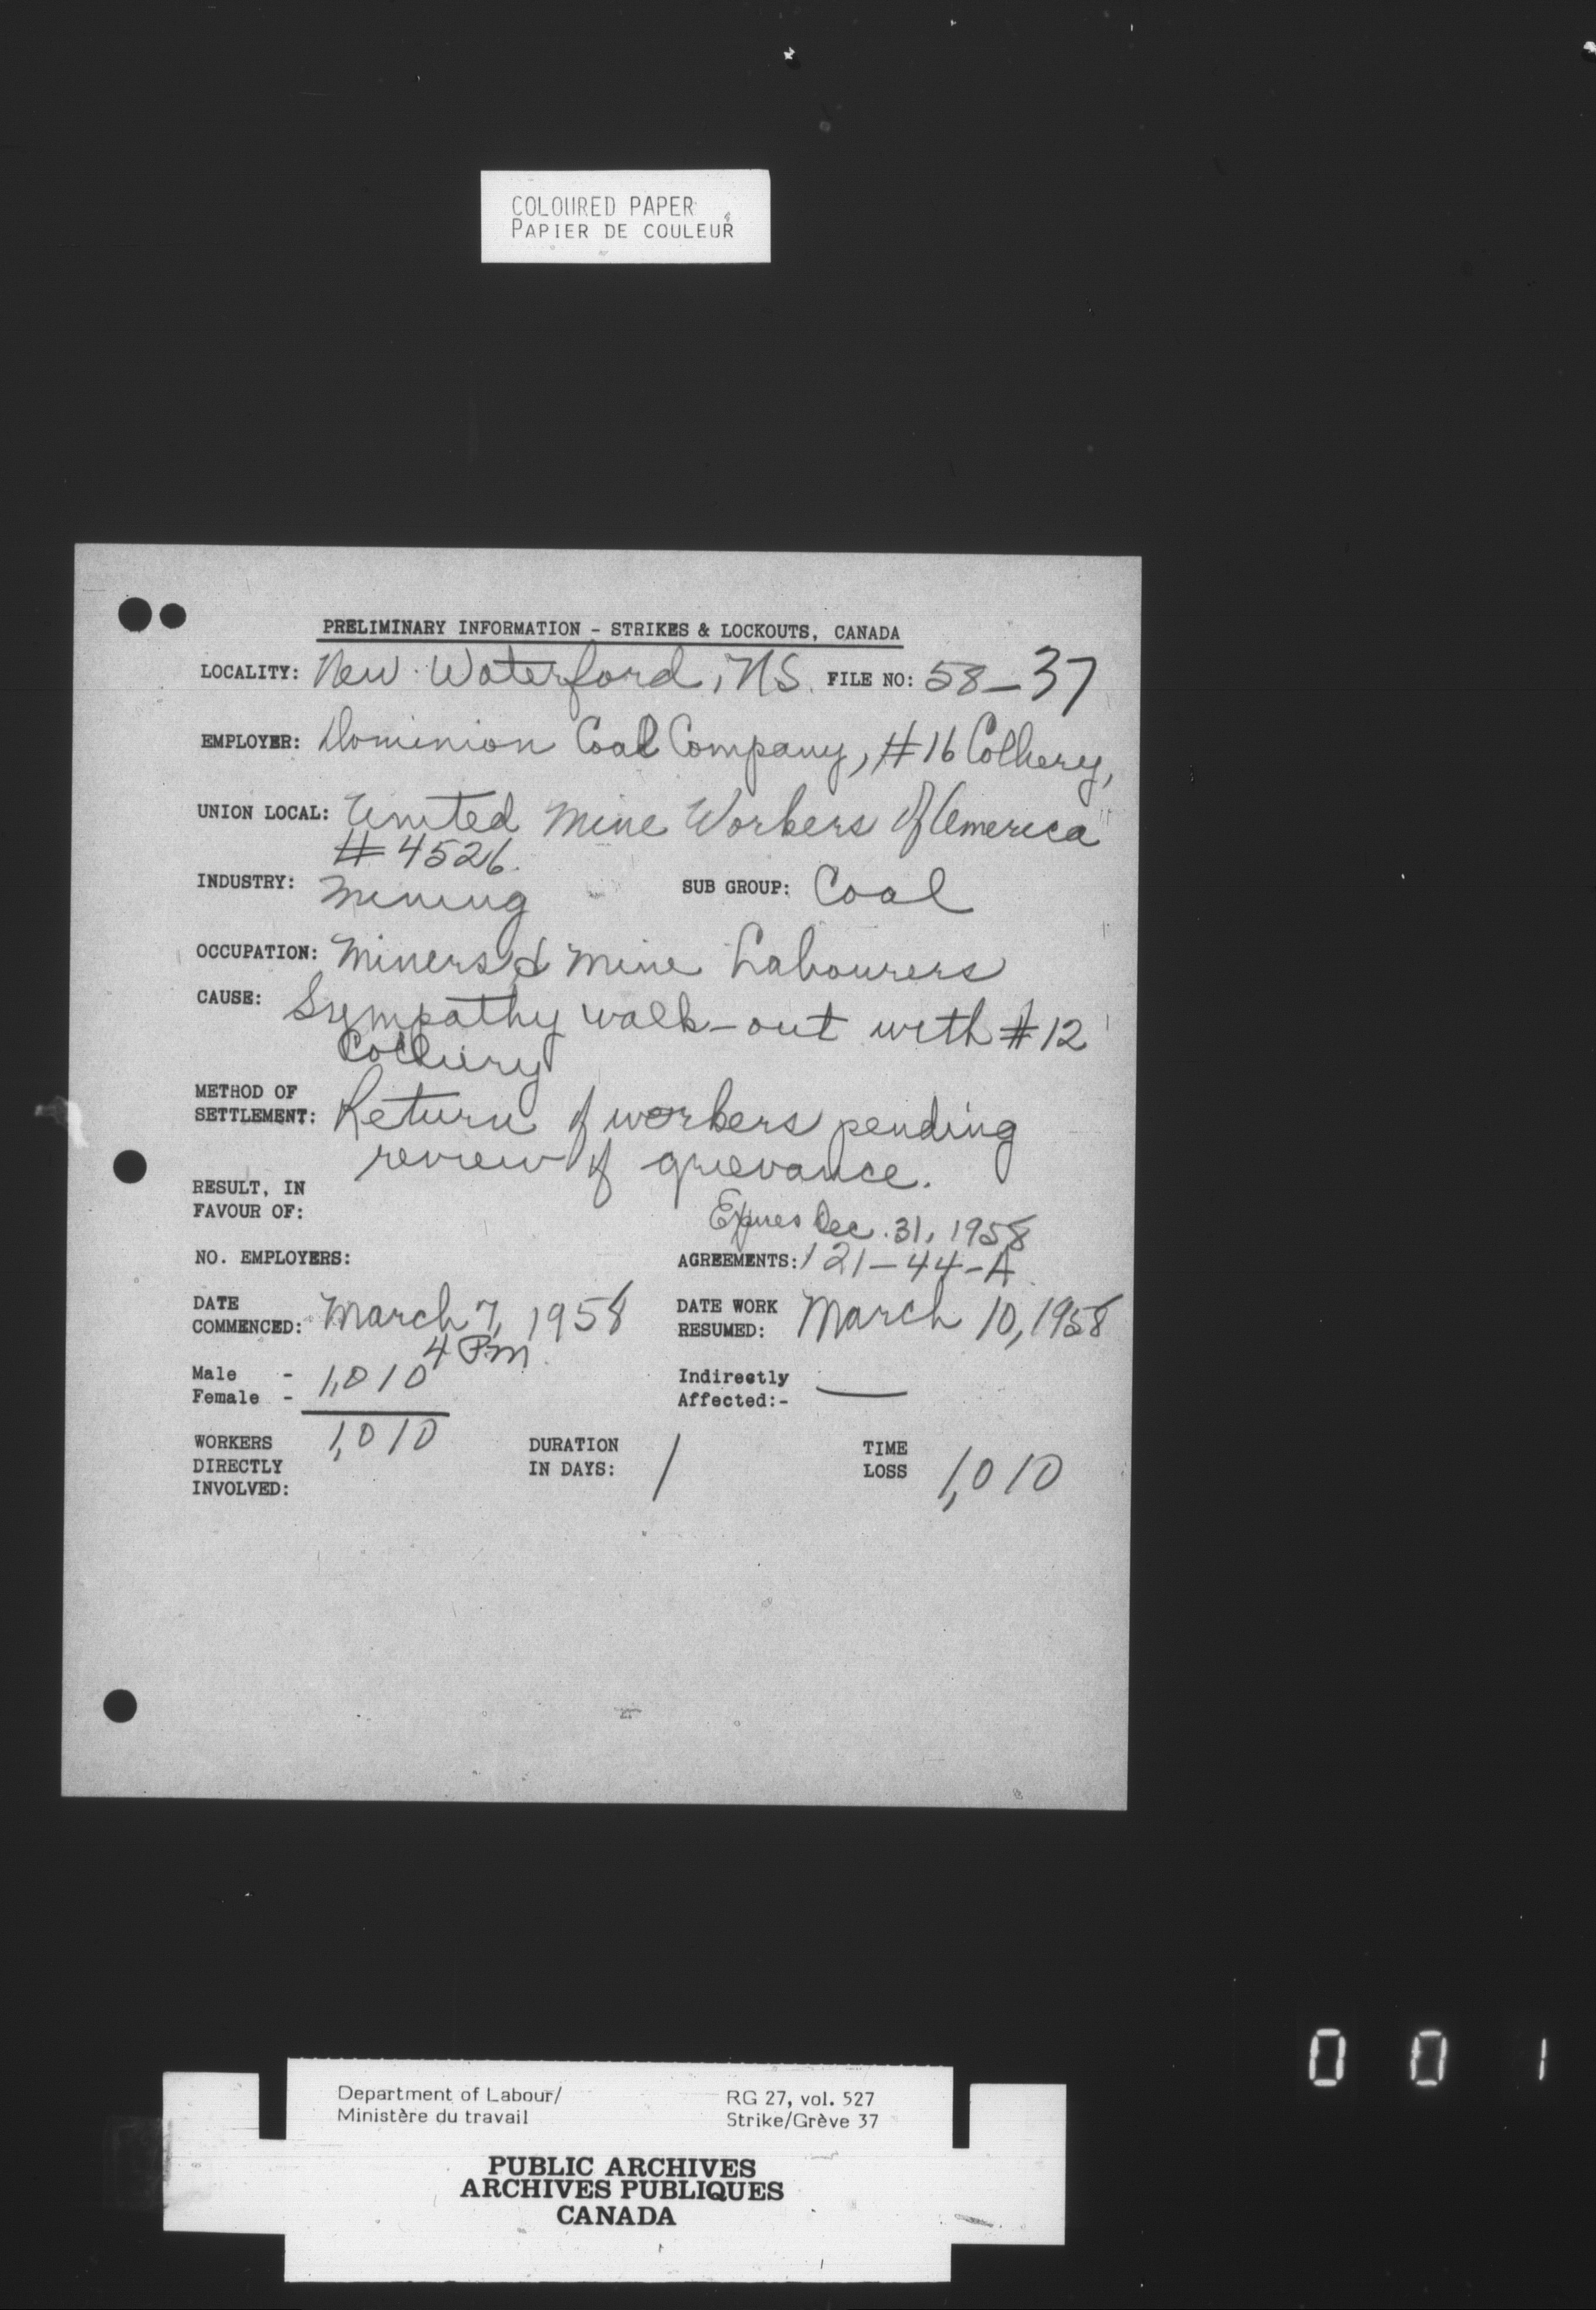 COLOURED PAPER
PAPIER DE COULEUR
PRELIMINARY INFORMATION - STRIKES & LOCKOUTS, CANADA
LOCALITY: New Waterford, NS. FILE NO: 58-37
EMPLOYER: Dominion Coal Company, #16 Colliery,
UNION LOCAL: United Mine Workers of America
#4526.
INDUSTRY: Mining SUB GROUP: Coal
OCCUPATION: Miners & Mine Labourers
CAUSE: Sympathy walk-out with #12
Colliery
METHOD OF
SETTLEMENT: Return of workers pending
review of grievance.
RESULT, IN
FAVOUR OF:
Expires Dec. 31, 1958
NO. EMPLOYERS: AGREEMENTS: 121-44-A
DATE
COMMENCED: March 7, 1958 DATE WORK
RESUMED: March 10, 1958
4 Pm
Male - 1,010 Indirectly
Female - Affected:- —
WORKERS
DIRECTLY
INVOLVED: 1,010 DURATION
IN DAYS: 1 TIME
LOSS 1,010
Department of Labour/ RG 27, vol. 527
Ministère du travail Strike/Grève 37
PUBLIC ARCHIVES
ARCHIVES PUBLIQUES
CANADA
0 0 1